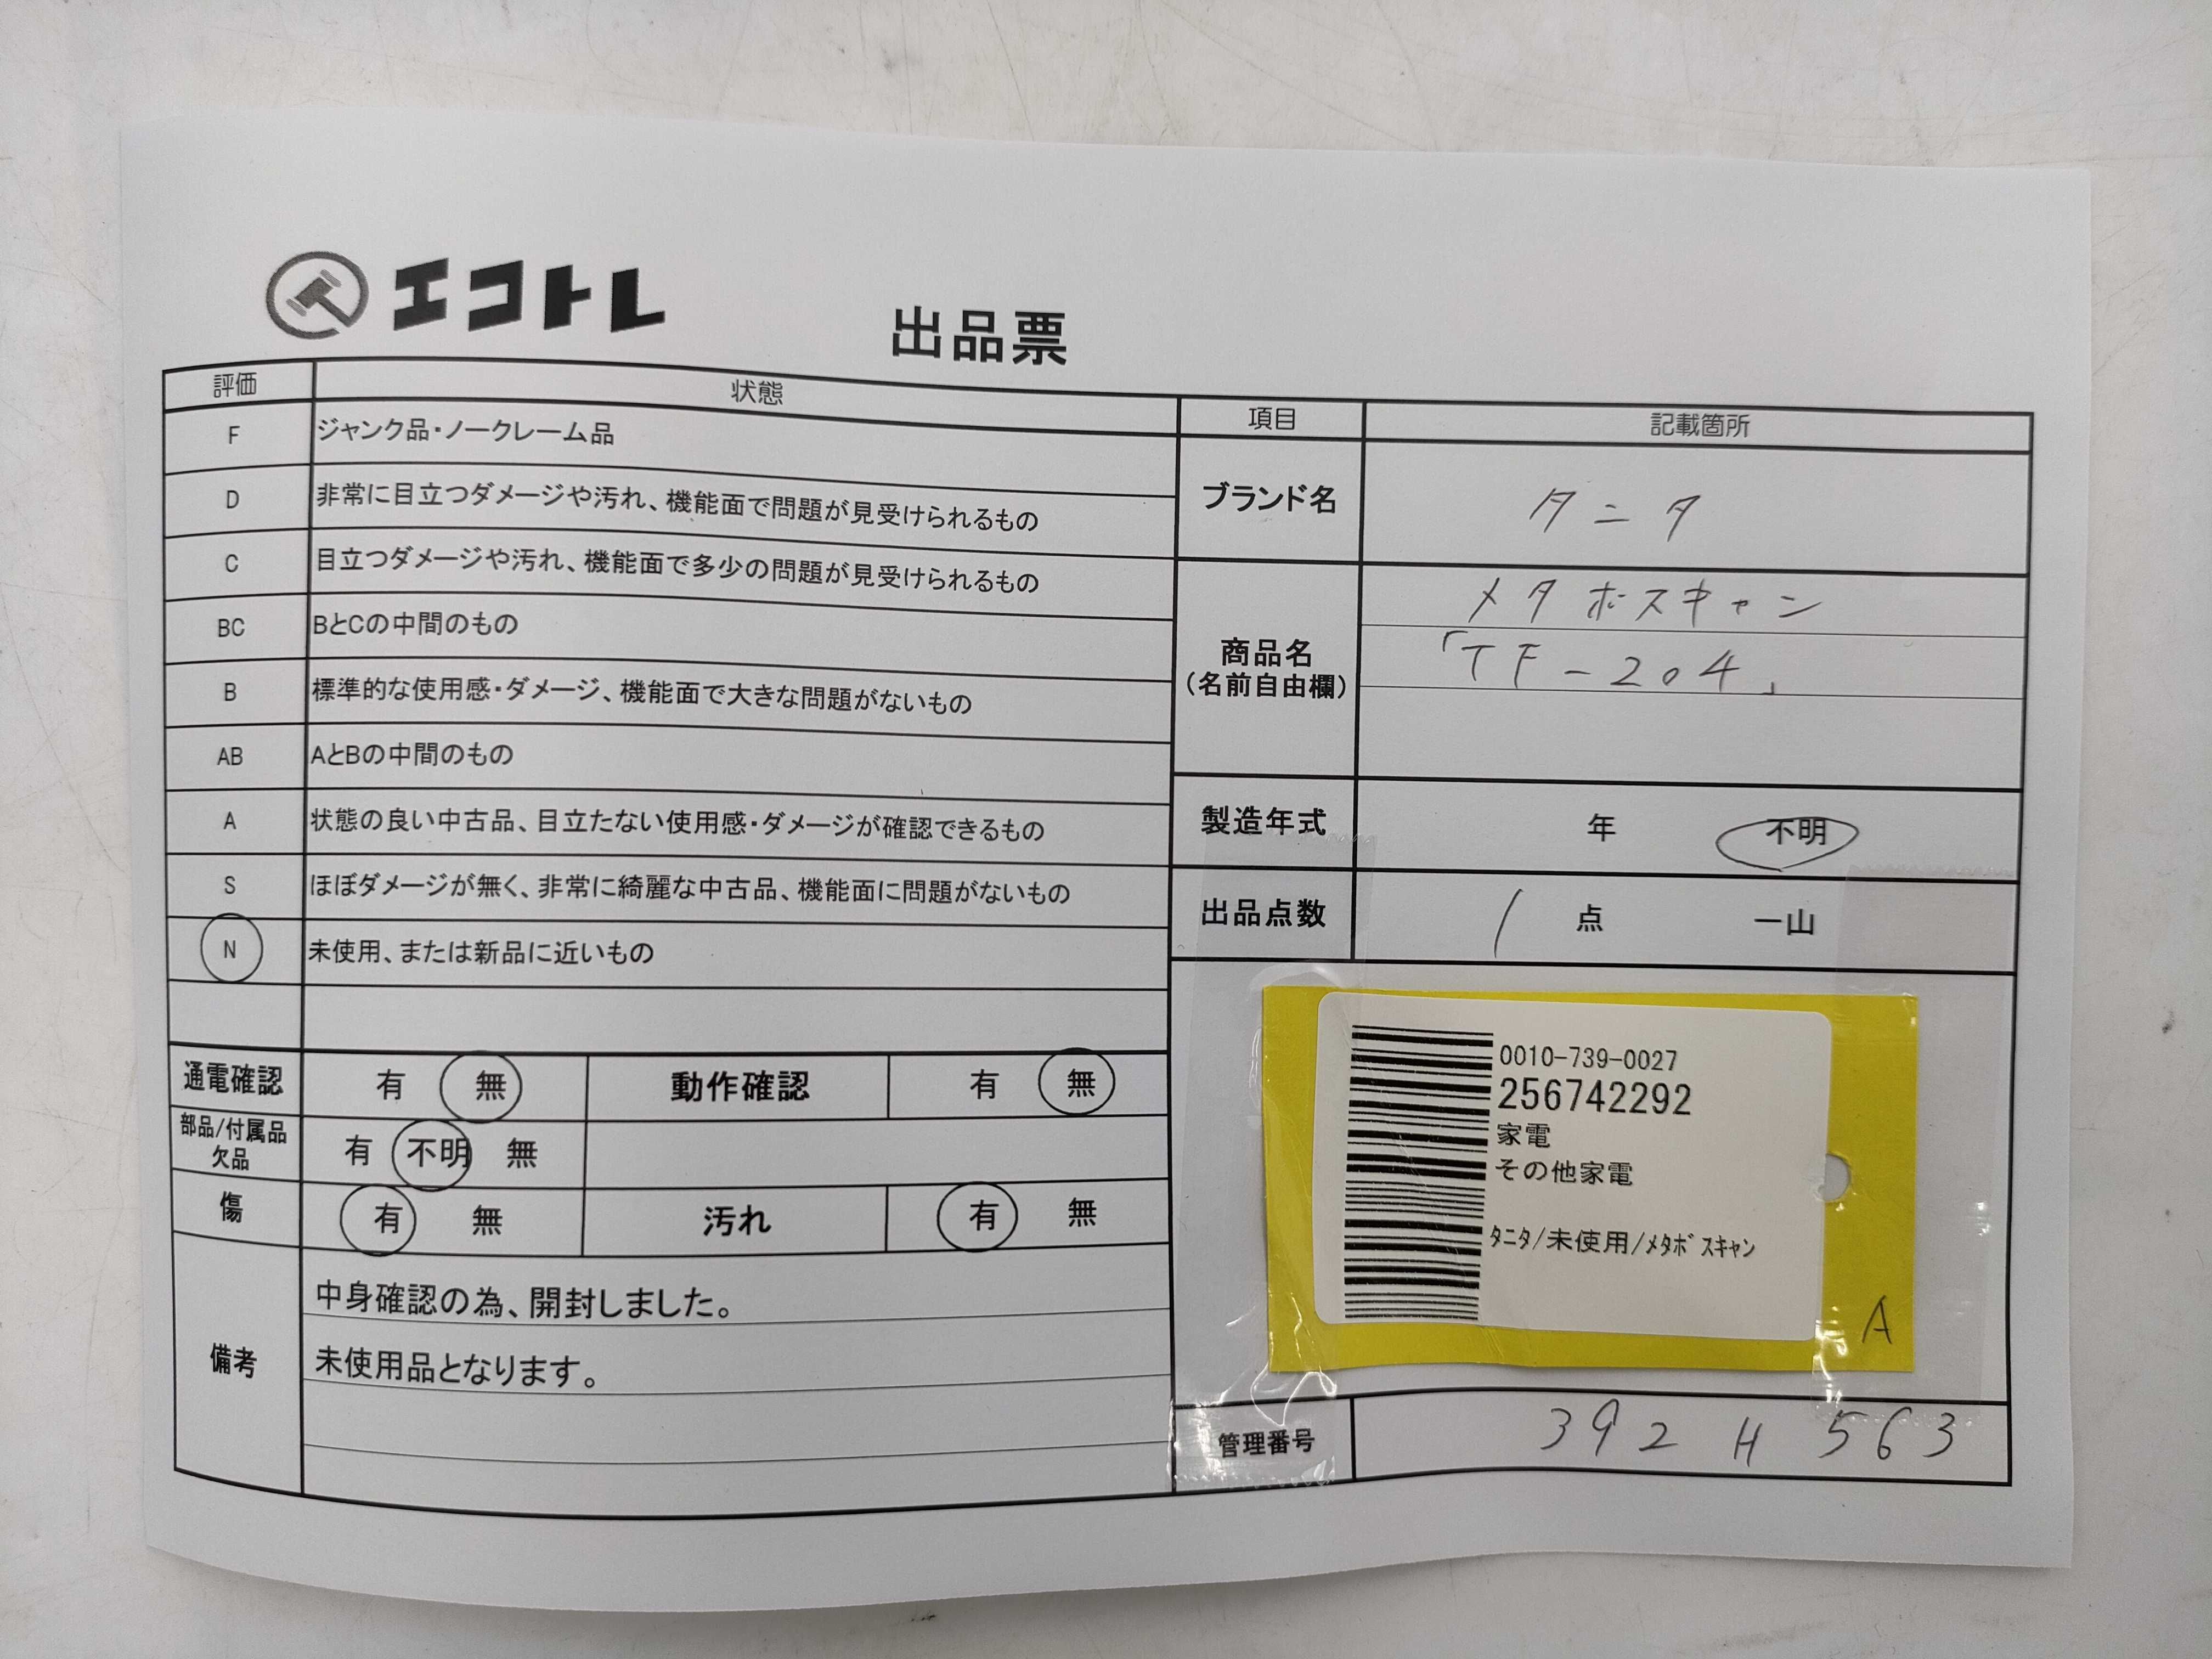 エコトレ
出品票
評価 状態
F ジャンク品・ノークレーム品
D 非常に目立つダメージや汚れ、機能面で問題が見受けられるもの
C 目立つダメージや汚れ、機能面で多少の問題が見受けられるもの
BC BとCの中間のもの
B 標準的な使用感・ダメージ、機能面で大きな問題がないもの
AB AとBの中間のもの
A 状態の良い中古品、目立たない使用感・ダメージが確認できるもの
S ほぼダメージが無く、非常に綺麗な中古品、機能面に問題がないもの
N 未使用、または新品に近いもの
通電確認 有 無 動作確認 有 無
部品/付属品
欠品 有 不明 無
傷 有 無 汚れ 有 無
備考
中身確認の為、開封しました。
未使用品となります。
項目 記載箇所
ブランド名 タニタ
商品名
(名前自由欄)
メタボスキャン
「TF-204」
製造年式 年 不明
出品点数 1 点 一山
0010-739-0027
256742292
家電
その他家電
ﾀﾆﾀ/未使用/ﾒﾀﾎﾞｽｷｬﾝ
A
管理番号 392 H 563